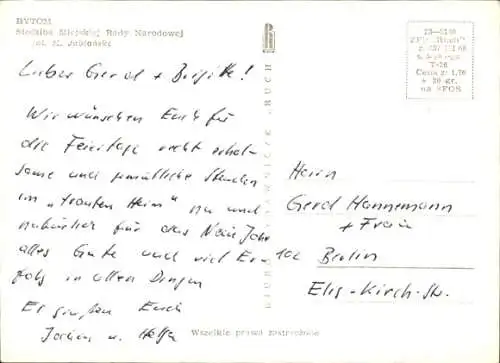 BYTOM
Siedziba Miejskiej Rady Narodowej
fot. K. Jabłoński
Lieber Gerd + Brigitte!
Wir wünschen Euch für
die Feiertage recht erhol-
same und gemütliche Stunden
im "trauten Heim" nu und
natürlich für das Neue Jahr
alles Gute und viel Er-
folg in allen Dingen
Es grüßen Euch
Jochen u. Helga
BIURO WYDAWNICZE „RUCH”
Herrn
Gerd Hannemann
+ Frau
102 Berlin
Elis-Kirch-Str.
Wszelkie prawa zastrzeżone
T-26
Cena zł 1,70
+ 20 gr.
na SFOS